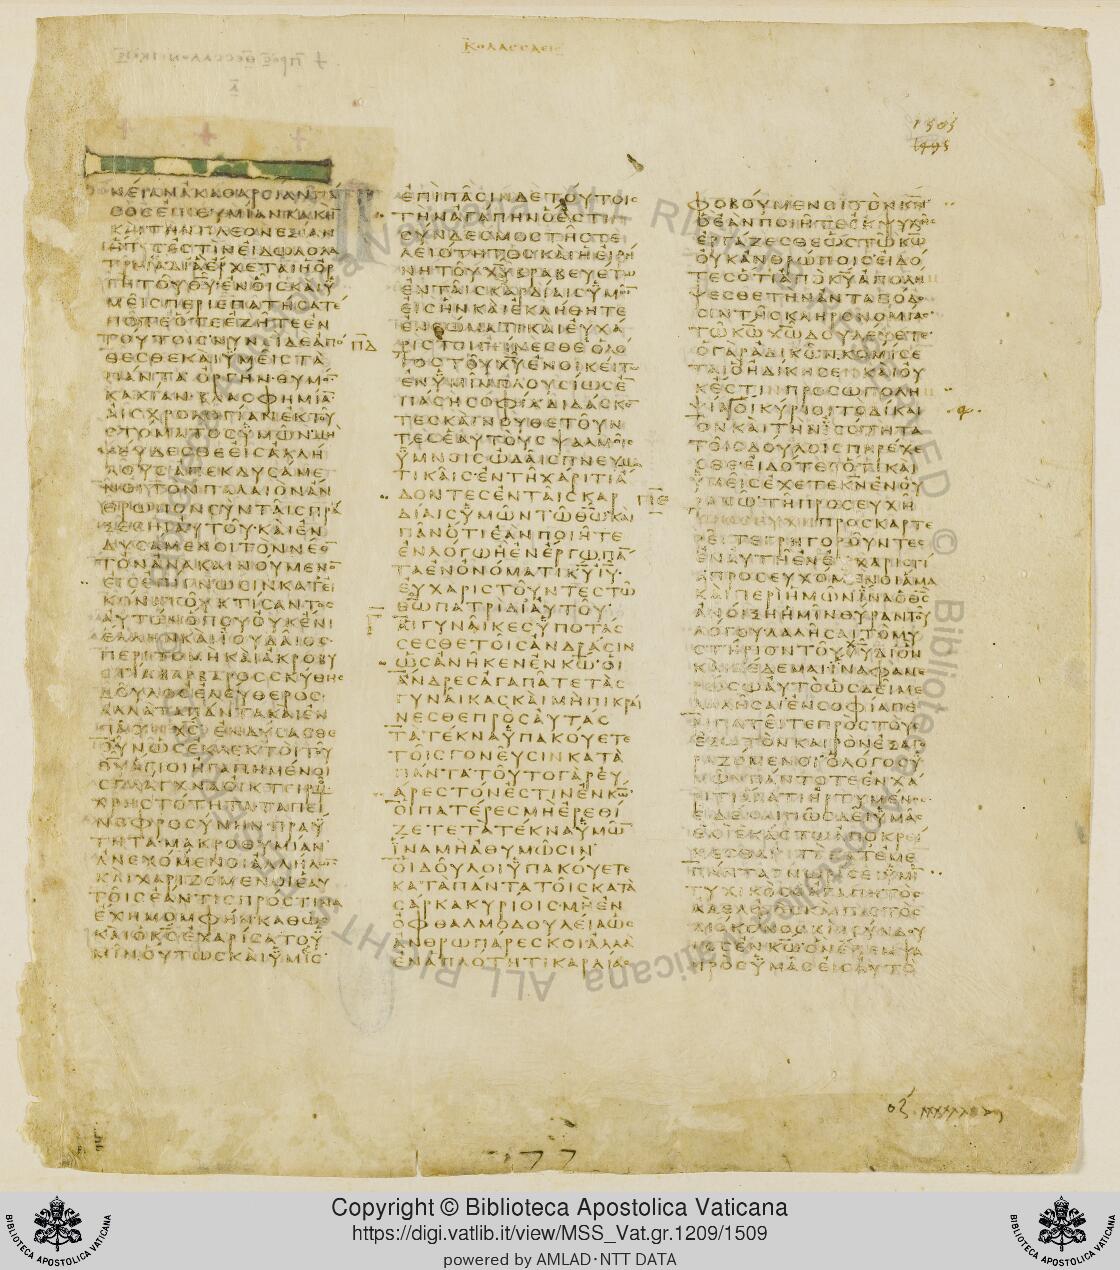 Κολασσαεις
1505
ΝΕΙΑΝΑΚΑΘΑΡϹΙΑΝΠΑ
ΘΟϹΕΠΙΘΥΜΙΑΝΚΑΚΗ
ΚΑΙΤΗΝΠΛΕΟΝΕΞΙΑΝ
ΗΤΙϹΕϹΤΙΝΕΙΔΩΛΟΛΑ
ΤΡΙΑΔΙΑΕΡΧΕΤΑΙΗΟΡ
ΓΗΤΟΥΘΥΕΝΟΙϹΚΑΙΥ
ΜΕΙϹΠΕΡΙΕΠΑΤΗϹΑΤΕ
ΠΟΤΕΟΤΕΕΖΗΤΕΕΝ
ΤΟΥΤΟΙϹΝΥΝ ΔΕΑΠΟ
ΘΕϹΘΕΚΑΙΥΜΕΙϹΤΑ
ΠΑΝΤΑΟΡΓΗΝΘΥΜΟ
ΚΑΚΙΑΝΒΛΑϹΦΗΜΙΑ
ΑΙϹΧΡΟΛΟΓΙΑΝΕΚΤΟΥ
ϹΤΟΜΑΤΟϹΥΜΩΝΜΗ
ΨΕΥΔΕϹΘΕΕΙϹΑΛΛΗ
ΛΟΥϹΑΠΕΚΔΥϹΑΜΕ
ΝΟΙΤΟΝΠΑΛΑΙΟΝΑΝ
ΘΡΩΠΟΝϹΥΝΤΑΙϹΠΡΑ
ΞΕϹΙΝΑΥΤΟΥΚΑΙΕΝ
ΔΥϹΑΜΕΝΟΙΤΟΝΝΕΟ
ΤΟΝΑΝΑΚΑΙΝΟΥΜΕΝΟ
ΕΙϹΕΠΙΓΝΩϹΙΝΚΑΤΕΙ
ΚΟΝΑΤΟΥΚΤΙϹΑΝΤΟϹ
ΑΥΤΟΝΟΠΟΥΟΥΚΕΝΙ
ΕΛΛΗΝΚΑΙΙΟΥΔΑΙΟϹ
ΠΕΡΙΤΟΜΗΚΑΙΑΚΡΟΒΥ
ϹΤΙΑΒΑΡΒΑΡΟϹϹΚΥΘΗϹ
ΔΟΥΛΟϹΕΛΕΥΘΕΡΟϹ
ΑΛΛΑΤΑΠΑΝΤΑΚΑΙΕΝ
ΠΑϹΙΧϹΕΝΔΥϹΑϹΘΕ
ΟΥΝΩϹΕΚΛΕΚΤΟΙΤΟΥ
ΘΥΑΓΙΟΙΗΓΑΠΗΜΕΝΟΙ
ϹΠΛΑΓΧΝΑΟΙΚΤΕΙΡΜΟΥ
ΧΡΗϹΤΟΤΗΤΑΤΑΠΕΙ
ΝΟΦΡΟϹΥΝΗΝΠΡΑΥ
ΤΗΤΑΜΑΚΡΟΘΥΜΙΑΝ
ΑΝΕΧΟΜΕΝΟΙΑΛΛΗΛΩΝ
ΚΑΙΧΑΡΙΖΟΜΕΝΟΙΕΑΥ
ΤΟΙϹΕΑΝΤΙϹΠΡΟϹΤΙΝΑ
ΕΧΗΜΟΜΦΗΝΚΑΘΩϹ
ΚΑΙΟΚϹΕΧΑΡΙϹΑΤΟΥ
ΜΙΝΟΥΤΩϹΚΑΙΥΜΕΙϹ
ΕΠΙΠΑϹΙΝΔΕΤΟΥΤΟΙϹ
ΤΗΝΑΓΑΠΗΝΟΕϹΤΙ
ϹΥΝΔΕϹΜΟϹΤΗϹΤΕ
ΛΕΙΟΤΗΤΟϹΚΑΙΗΕΙΡΗ
ΝΗΤΟΥΧΥΒΡΑΒΕΥΕΤΩ
ΕΝΤΑΙϹΚΑΡΔΙΑΙϹΥΜΩ
ΕΙϹΗΝΚΑΙΕΚΛΗΘΗΤΕ
ΕΝϹΩΜΑΤΙΚΑΙΕΥΧΑ
ΡΙϹΤΟΙΓΕΙΝΕϹΘΕΟΛΟ
ΓΟϹΤΟΥΧΥΕΝΟΙΚΕΙΤΩ
ΕΝΥΜΙΝΠΛΟΥϹΙΩϹΕ
ΠΑϹΗϹΟΦΙΑΔΙΔΑϹΚΟ
ΤΕϹΚΑΙΝΟΥΘΕΤΟΥΝ
ΤΕϹΕΑΥΤΟΥϹΨΑΛΜΟΙϹ
ΥΜΝΟΙϹΩΔΑΙϹΠΝΕΥΜΑ
ΤΙΚΑΙϹΕΝΤΗΧΑΡΙΤΙΑ
ΔΟΝΤΕϹΕΝΤΑΙϹΚΑΡ
ΔΙΑΙϹΥΜΩΝΤΩΘΩΚΑΙ
ΠΑΝΟΤΙΕΑΝΠΟΙΗΤΕ
ΕΝΛΟΓΩΗΕΝΕΡΓΩΠΑ
ΤΑΕΝΟΝΟΜΑΤΙΚΥΙΥ
ΕΥΧΑΡΙϹΤΟΥΝΤΕϹΤΩ
ΘΩΠΑΤΡΙΔΙΑΥΤΟΥ
ΑΙΓΥΝΑΙΚΕϹΥΠΟΤΑϹ
ϹΕϹΘΕΤΟΙϹΑΝΔΡΑϹΙΝ
ΩϹΑΝΗΚΕΝΕΝΚΩΟΙ
ΑΝΔΡΕϹΑΓΑΠΑΤΕΤΑϹ
ΓΥΝΑΙΚΑϹΚΑΙΜΗΠΙΚΡΑΙ
ΝΕϹΘΕΠΡΟϹΑΥΤΑϹ
ΤΑΤΕΚΝΑΥΠΑΚΟΥΕΤΕ
ΤΟΙϹΓΟΝΕΥϹΙΝΚΑΤΑ
ΠΑΝΤΑΤΟΥΤΟΓΑΡΕΥ
ΑΡΕϹΤΟΝΕϹΤΙΝΕΝΚΩ
ΟΙΠΑΤΕΡΕϹΜΗΕΡΕΘΙ
ΖΕΤΕΤΑΤΕΚΝΑΥΜΩ
ΙΝΑΜΗΑΘΥΜΩϹΙΝ
ΟΙΔΟΥΛΟΙΥΠΑΚΟΥΕΤΕ
ΚΑΤΑΠΑΝΤΑΤΟΙϹΚΑΤΑ
ϹΑΡΚΑΚΥΡΙΟΙϹΜΗΕΝ
ΟΦΘΑΛΜΟΔΟΥΛΕΙΑΩϹ
ΑΝΘΡΩΠΑΡΕϹΚΟΙΑΛΛΑ
ΕΝΑΠΛΟΤΗΤΙΚΑΡΔΙΑϹ
ΦΟΒΟΥΜΕΝΟΙΤΟΝΚΝ
ΟΕΑΝΠΟΙΗΤΕΕΚΨΥΧΗϹ
ΕΡΓΑΖΕϹΘΕΩϹΤΩΚΩ
ΟΥΚΑΝΘΡΩΠΟΙϹΕΙΔΟ
ΤΕϹΟΤΙΑΠΟΚΥΑΠΟΛΗ
ΨΕϹΘΕΤΗΝΑΝΤΑΠΟΔΟ
ϹΙΝΤΗϹΚΛΗΡΟΝΟΜΙΑϹ
ΤΩΚΩΧΩΔΟΥΛΕΥΕΤΕ
ΟΓΑΡΑΔΙΚΩΝΚΟΜΙϹΕ
ΤΑΙΟΗΔΙΚΗϹΕΝΚΑΙΟΥ
ΚΕϹΤΙΝΠΡΟϹΩΠΟΛΗ
ΨΙΑΟΙΚΥΡΙΟΙΤΟΔΙΚΑΙ
ΟΝΚΑΙΤΗΝΙϹΟΤΗΤΑ
ΤΟΙϹΔΟΥΛΟΙϹΠΑΡΕΧΕ
ϹΘΕΕΙΔΟΤΕϹΟΤΙΚΑΙ
ΥΜΕΙϹΕΧΕΤΕΚΝΕΝΟΥ
ΡΑΝΩΤΗΠΡΟϹΕΥΧΗ
ΠΡΟϹΚΑΡΤΕ
ΡΕΙΤΕΓΡΗΓΟΡΟΥΝΤΕϹ
ΕΝΑΥΤΗΕΝΕΥΧΑΡΙϹΤΙ
ΑΠΡΟϹΕΥΧΟΜΕΝΟΙΑΜΑ
ΚΑΙΠΕΡΙΗΜΩΝΙΝΑΟΘϹ
ΑΝΟΙΞΗΗΜΙΝΘΥΡΑΝΤΟΥ
ΛΟΓΟΥΛΑΛΗϹΑΙΤΟΜΥ
ϹΤΗΡΙΟΝΤΟΥΘΥΔΙΟΝ
ΚΑΙΔΕΔΕΜΑΙΙΝΑΦΑΝΕ
ΡΩϹΩΑΥΤΟΩϹΔΕΙΜΕ
ΛΑΛΗϹΑΙΕΝϹΟΦΙΑΠΕ
ΡΙΠΑΤΕΙΤΕΠΡΟϹΤΟΥϹ
ΕΞΩΤΟΝΚΑΙΡΟΝΕΞΑΓΟ
ΡΑΖΟΜΕΝΟΙΟΛΟΓΟϹΥ
ΜΩΝΠΑΝΤΟΤΕΕΝΧΑ
ΡΙΤΙΑΛΑΤΙΗΡΤΥΜΕΝΟϹ
ΕΙΔΕΝΑΙΠΩϹΔΕΙΥΜΑϹ
ΕΝΙΕΚΑϹΤΩΑΠΟΚΡΕΙ
ΝΕϹΘΑΙΤΑΚΑΤΕΜΕ
ΠΑΝΤΑΓΝΩΡΙϹΕΙΥΜΙ
ΤΥΧΙΚΟϹΟΑΓΑΠΗΤΟϹ
ΑΔΕΛΦΟϹΚΑΙΠΙϹΤΟϹ
ΔΙΑΚΟΝΟϹΚΑΙϹΥΝΔΟΥ
ΛΟϹΕΝΚΩΟΝΕΠΕΜΨΑ
ΠΡΟϹΥΜΑϹΕΙϹΑΥΤΟ
ΠΔ
ΠΕ
Copyright © Biblioteca Apostolica Vaticana
https://digi.vatlib.it/view/MSS_Vat.gr.1209/1509
powered by AMLAD·NTT DATA